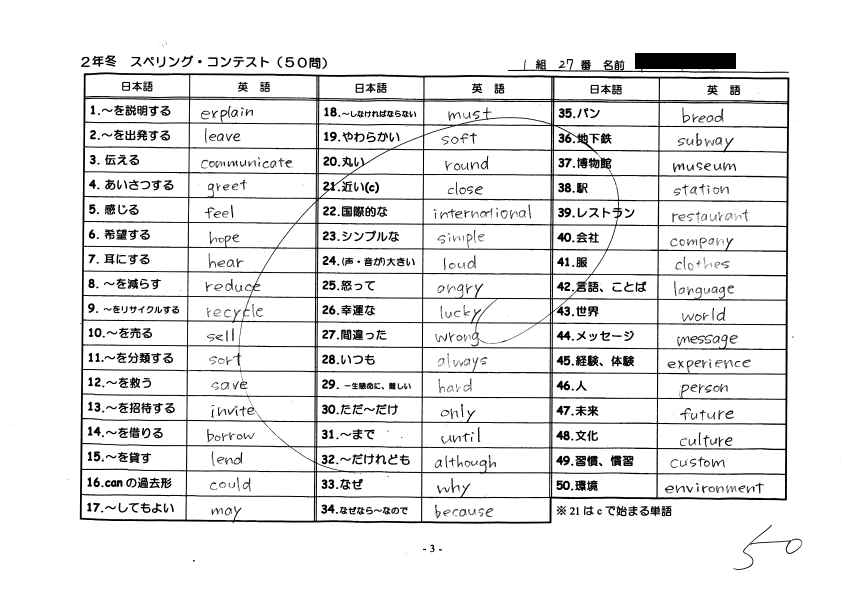 2年冬 スペリング・コンテスト（50問）
1組 27番 名前
日本語 英語 日本語 英語 日本語 英語
1.～を説明する explain 18.～しなければならない must 35.パン bread
2.～を出発する leave 19.やわらかい soft 36.地下鉄 subway
3. 伝える communicate 20.丸い round 37.博物館 museum
4. あいさつする greet 21.近い(c) close 38.駅 station
5. 感じる feel 22.国際的な international 39.レストラン restaurant
6. 希望する hope 23.シンプルな simple 40.会社 company
7. 耳にする hear 24.(声・音が)大きい loud 41.服 clothes
8. ～を減らす reduce 25.怒って angry 42.言語、ことば language
9. ～をリサイクルする recycle 26.幸運な lucky 43.世界 world
10.～を売る sell 27.間違った wrong 44.メッセージ message
11.～を分類する sort 28.いつも always 45.経験、体験 experience
12.～を救う save 29. 一生懸命に、難しい hard 46.人 person
13.～を招待する invite 30.ただ～だけ only 47.未来 future
14.～を借りる borrow 31.～まで until 48.文化 culture
15.～を貸す lend 32.～だけれども although 49.習慣、慣習 custom
16.canの過去形 could 33.なぜ why 50.環境 environment
17.～してもよい may 34.なぜなら～なので because ※21はcで始まる単語
- 3 -
50